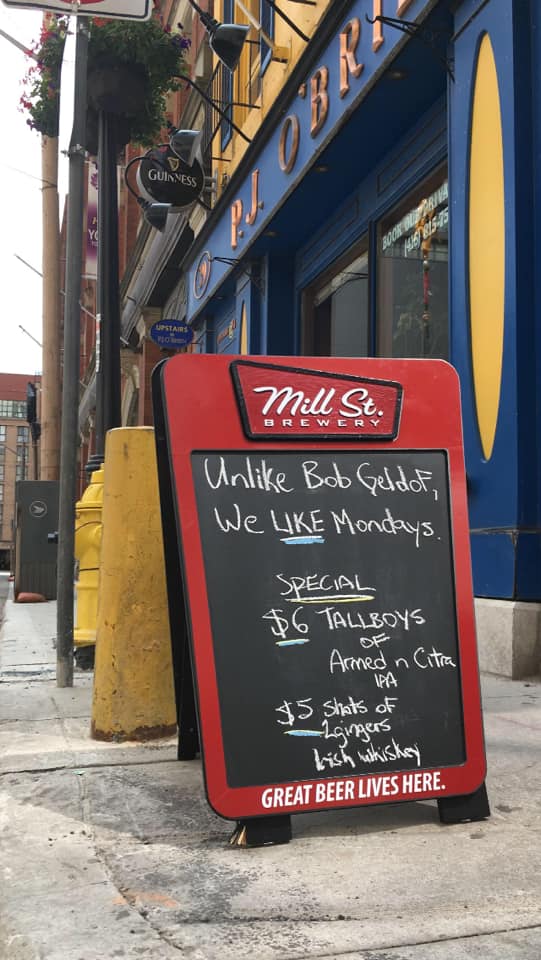 GUINNESS
P.J. O'BRI
UPSTAIRS
Mill St.
BREWERY
Unlike Bob Geldof,
We LIKE Mondays.
SPECIAL
$6 TALLBOYS
OF
Armed n Citra
IPA
$5 shots of
2gingers
Irish whiskey
GREAT BEER LIVES HERE.